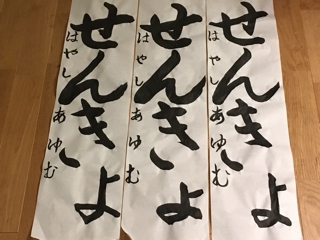 せんきよ
はやしあゆむ
せんきよ
はやしあゆむ
せんきよ
はやしあゆむ